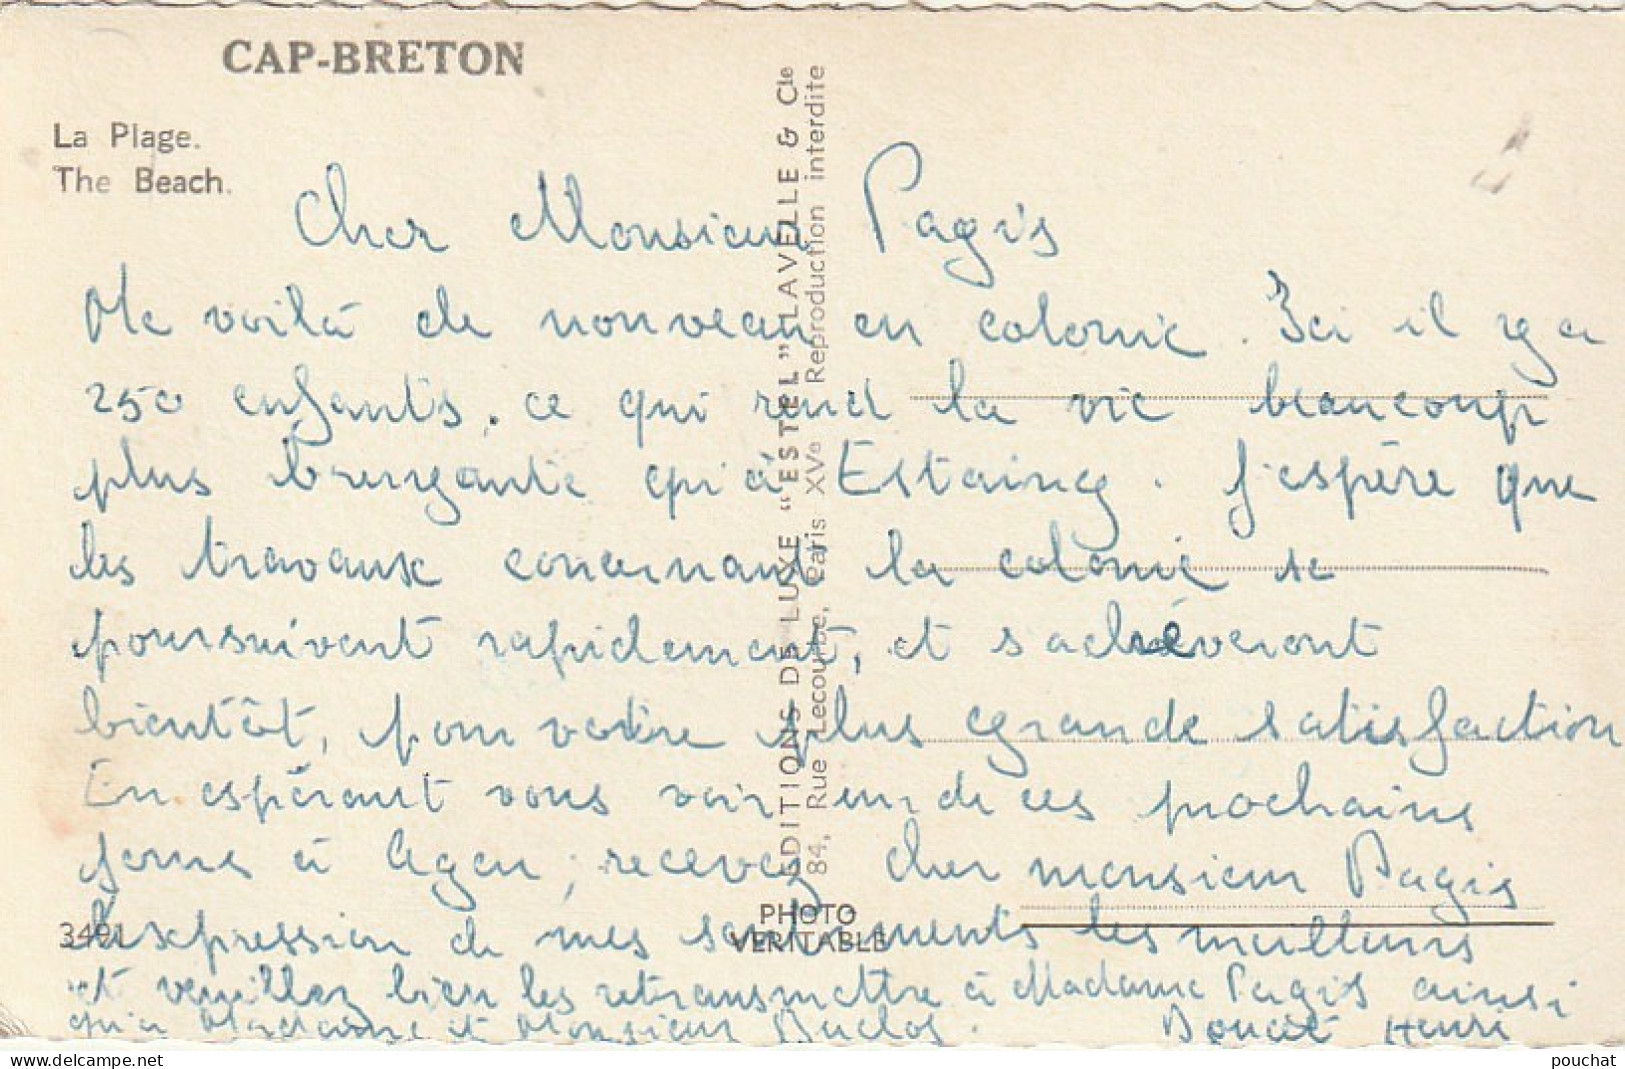 CAP-BRETON
La Plage.
The Beach.
EDITIONS DE LUXE "ESTEL" LAVELLE & Cie
84, Rue Lecourbe, Paris XVe Reproduction interdite
Cher Monsieur Pagis
Me voilà de nouveau en colonie. Ici il y a
250 enfants, ce qui rend la vie beaucoup
plus bruyante qu'à Estaing. J'espère que
les travaux concernant la colonie se
poursuivent rapidement, et s'achèveront
bientôt, pour votre plus grande satisfaction
En espérant vous voir un de ces prochains
jours à Agen, recevez cher monsieur Pagis
l'expression de mes sentiments les meilleurs
et veuillez bien les retransmettre à Madame Pagis ainsi
qu'à Madame et Monsieur Duclos. Doucet Henri
3491
PHOTO
VERITABLE
delcampe.net
pouchat